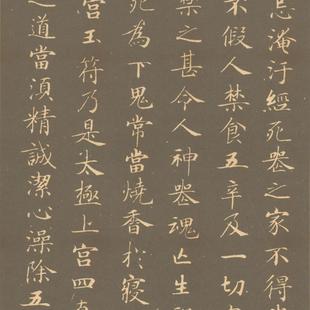 忌淹汙經死喪之家不得
不假人禁食五辛及一切
禁之甚令人神喪魂亡生
死為下鬼常當燒香於寢
宮玉符乃是太極上宮四
之道當須精誠潔心澡除五